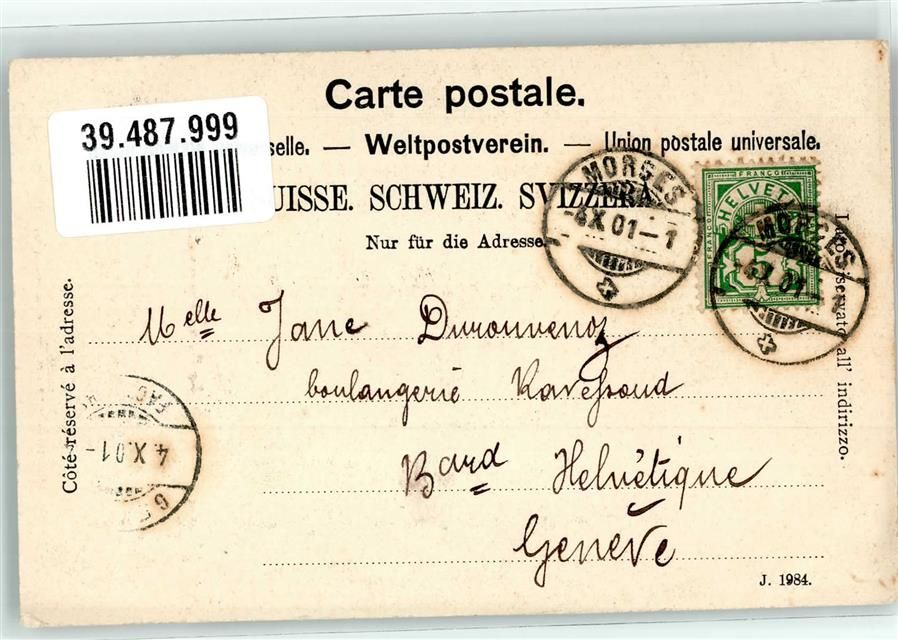 Carte postale.
39.487.999
selle. — Weltpostverein. — Union postale universale.
UISSE. SCHWEIZ. SVIZZERA.
Nur für die Adresse.
MORGES
-4.X.01-1
FRANCO
HELVETIA
FRANCO
MORGES
4.X.01-1
Côté réservé à l'adresse.
Lato riservato all' indirizzo.
Melle Jane
boulangerie
Bard Helvétique
Genève
4.X.01-
J. 1984.